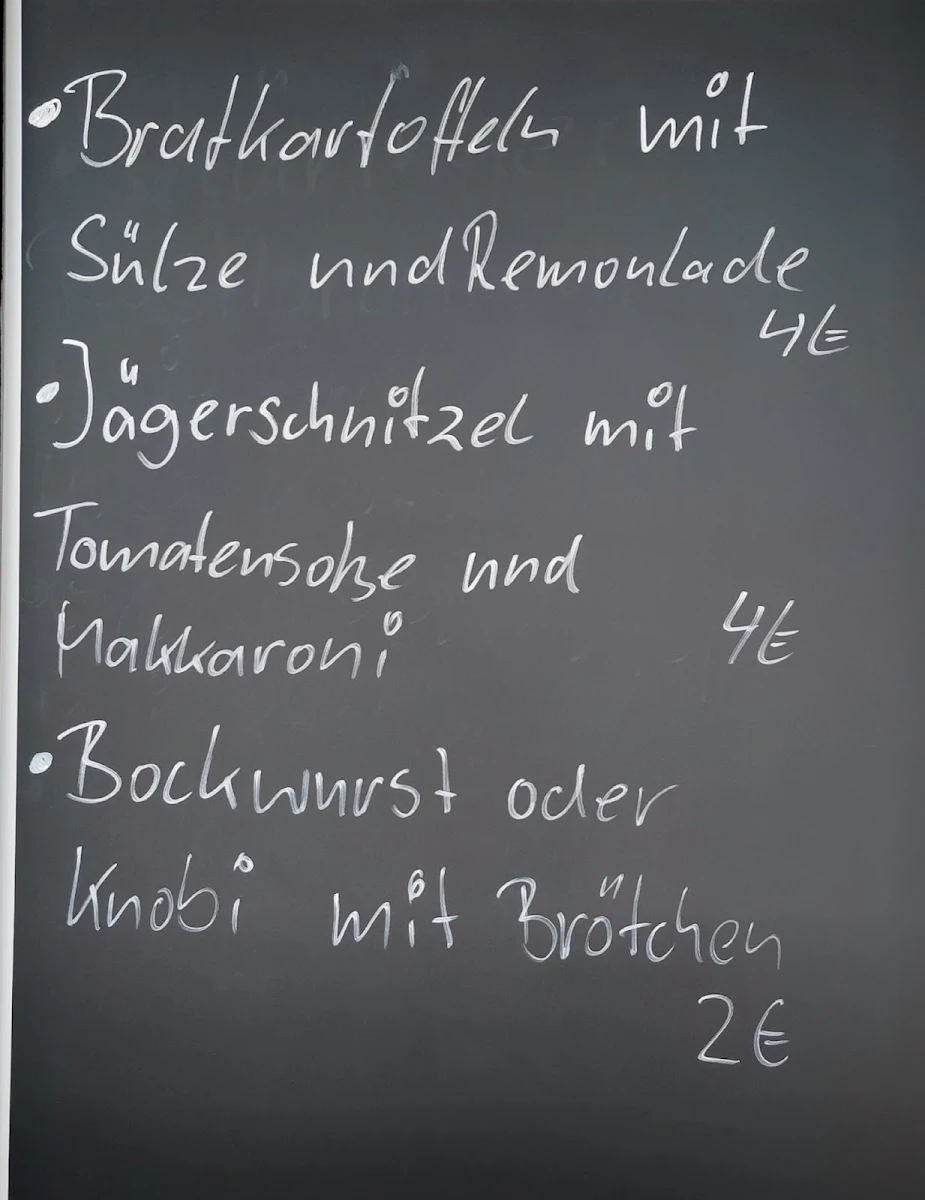 • Bratkartoffeln mit
Sülze und Remoulade
4€
• Jägerschnitzel mit
Tomatensoße und
Makkaroni 4€
• Bockwurst oder
Knobi mit Brötchen
2€